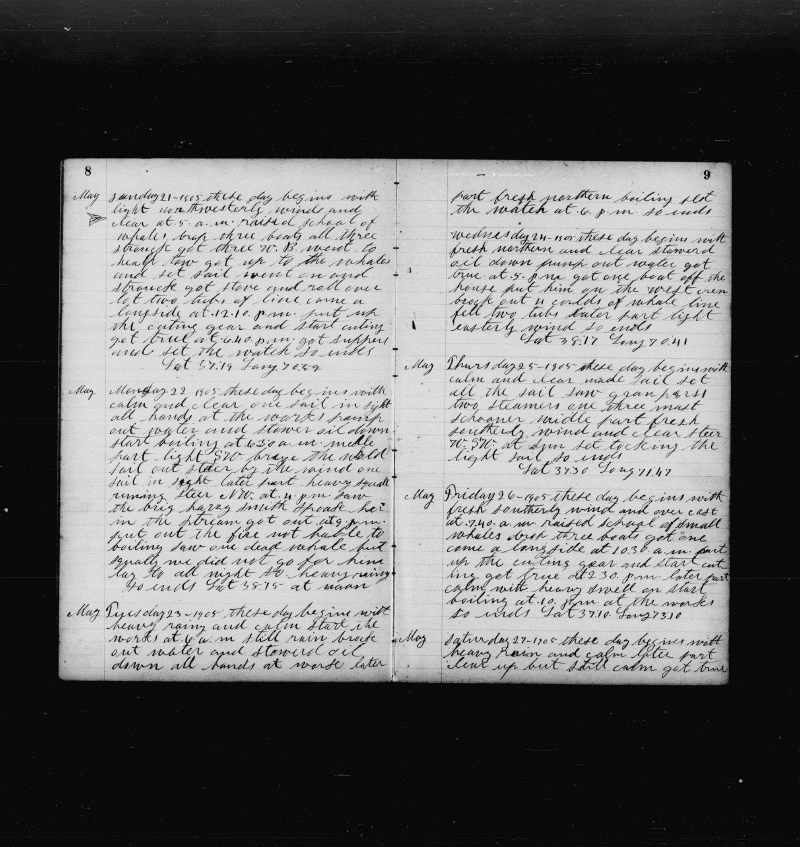 8
May sunday 21-1905 these day begins with
light northwesterly winds and
clear at 5. a. m. raised school of
whals three boats all three
stronge got three W. B. went to
heave tow got up to the whales
and set sail went on and
strouck got stove and roll over
lot two tubs of line came a
longside at 12.10. p.m. put up
the cuting gear and start cuting
got true at 6.40 p.m. got suppers
and set the watch so inds
Lat 37.19 Long 70.59
May Monday 22 1905 these day begins with
calm and clear one sail in sight
all hands at the works pump
out water and stower oil down
start boiling at 6.30 a. m. medle
part light
sail out steer by the wind one
sail in sight later part heavy squale
runing steer at 4. p.m. saw
the brig harry smith speak her
in the stream got out at 9. p.m.
put out the fire not hable to
boiling saw one dead whale but
squally we did not go for him
lay to all night heavy rainy
So ends Lat 38.15 at noon
May Tuesday 23-1905, these day begins with
heavy rainy and calm start the
works at 6 a. m still rain broke
out water and stowerd oil
down all hands at worse later
9
part fresh northern boiling slot
the watch at 6. p.m. so inds
wednesday 24-1905 these day begins with
fresh northern and clear stowerd
oil down pump out water got
true at 5. p.m. got one boat off the
house put him on the
brock out 4 coulds of whale line
fell two tubs later part light
easterly wind so ends
Lat 38.17 Long 70.41
May Thursday 25-1905 these day begins with
calm and clear made sail set
all the sail saw granpers
two steamers one three mast
schooner middle part fresh
southerly wind and clear steer
at sun set tocking the
light sail so ends
Lat 37.30 Long 71.47
May Friday 26-1905 these day begins with
fresh southerly wind and over cast
at 7.40. a. m raised school of small
whales three boats got one
come a longside at 10.30 a.m. part
up the cuting gear and start cut
ing got true at 2.30. p.m later part
calm with heavy swell on start
boiling at 10. p.m at the works
so ends Lat 37.10 Long 73.10
May Saturday 27-1905 these day begines with
heavy rain and calm later part
clear up but still calm got true